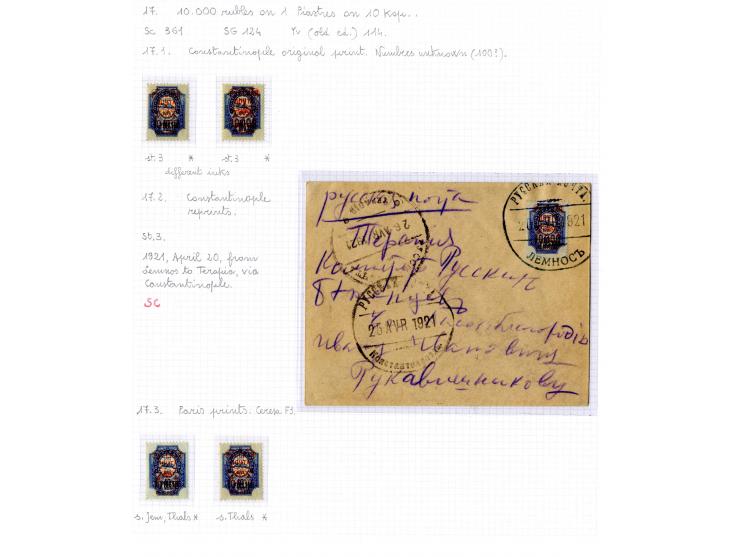 17. 10.000 rubles on 1 Piastres on 10 Kop..
Sc 361 SG 124 Yv (old ed.) 114.
17.1. Constantinople original print. Numbres unknown (100?).
st.3 * st.3 *
different inks
17.2. Constantinople
reprints.
St.3.
1921, April 20, from
Lemnos to Terapia, via
Constantinople.
SC
русская почта
Терапия
Комитет Русских
РУССКАЯ ПОЧТА.
1921
ЛЕМНОСЪ
РУССКАЯ
25 1921
Ивановичу
Рукавишникову
17.3. Paris prints. Ceresa F3.
s. Jem, Thals * s. Thals *